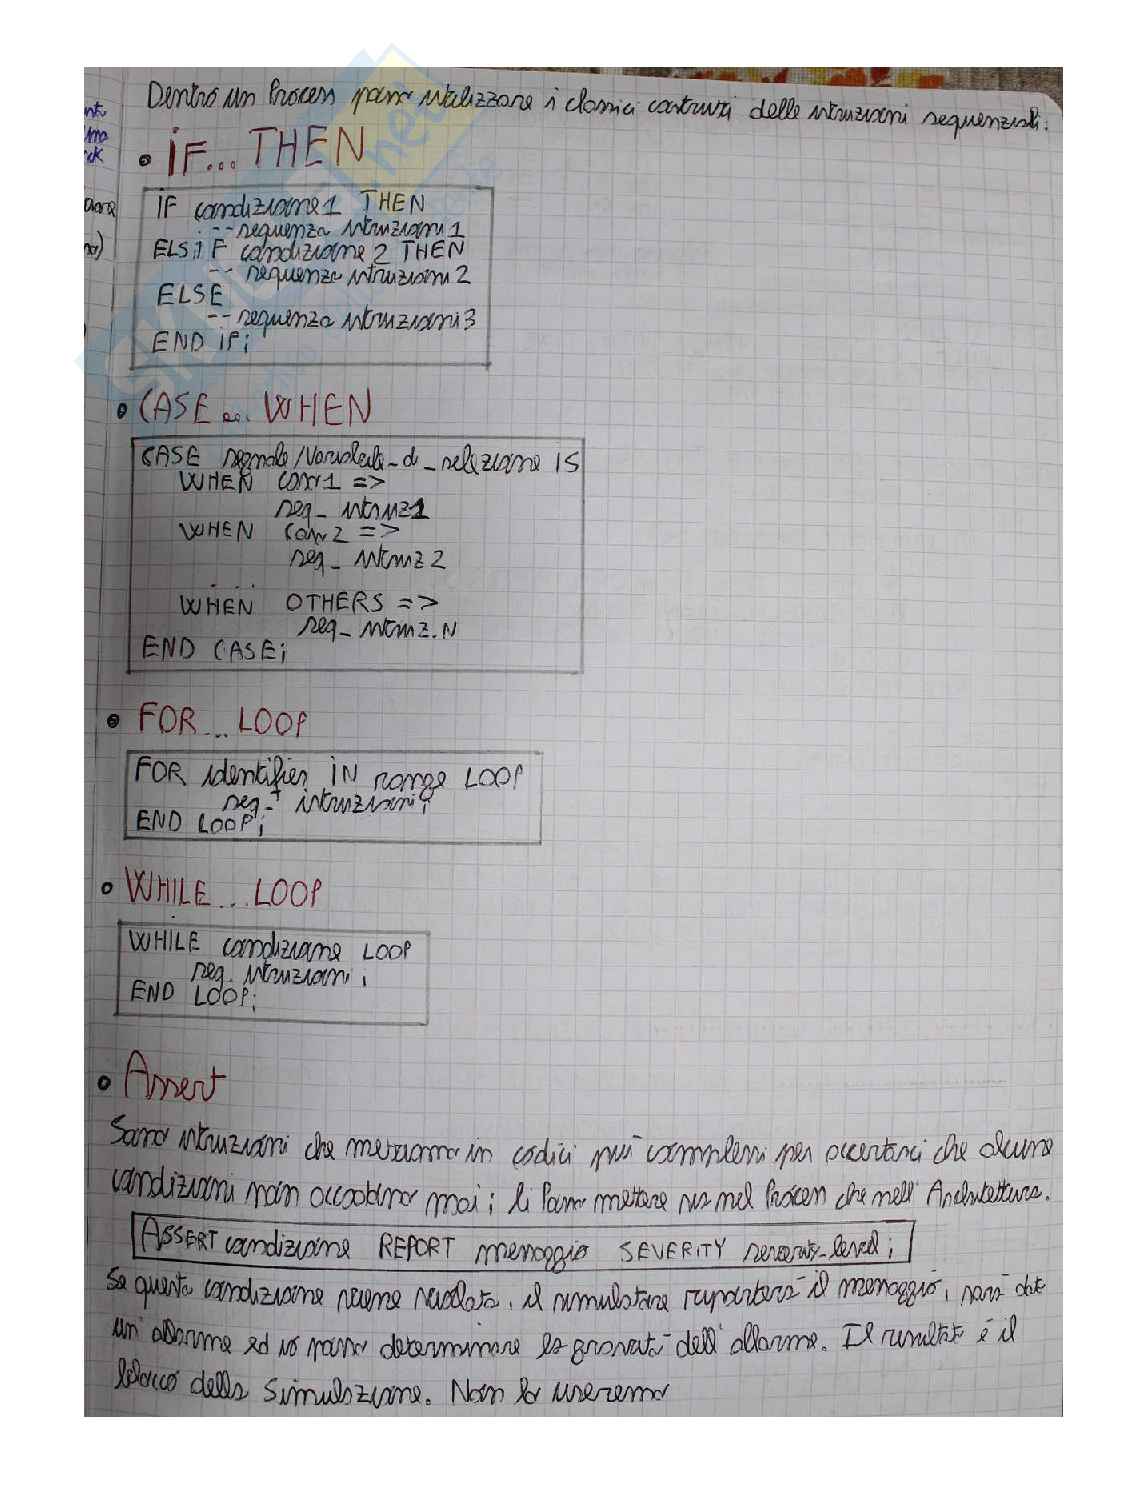 Dentro un Process posso utilizzare i classici costrutti delle istruzioni sequenziali:
• IF...THEN
IF condizione1 THEN
-- sequenza istruzioni 1
ELSIF condizione 2 THEN
-- sequenza istruzioni 2
ELSE
-- sequenza istruzioni 3
END if;
• CASE ... WHEN
CASE segnale/Variabile_di_selezione IS
WHEN cas1 =>
seq_istruz1
WHEN cas2 =>
seq_istruz2
. . . .
WHEN OTHERS =>
seq_istruz.N
END CASE;
• FOR ... LOOP
FOR identifier IN range LOOP
seq_istruzioni;
END LOOP;
• WHILE ... LOOP
WHILE condizione LOOP
seq. istruzioni;
END LOOP;
• Assert
Sono istruzioni che mettiamo in codici più complessi per accertarci che alcune
condizioni non accadano mai; li posso mettere sia nel Process che nell'Architettura.
ASSERT condizione REPORT messaggio SEVERITY severity_level;
Se questa condizione viene violata, il simulatore riporterà il messaggio, sarà dato
un allarme ed io posso determinare la gravità dell'allarme. Il risultato è il
blocco della simulazione. Non lo useremo